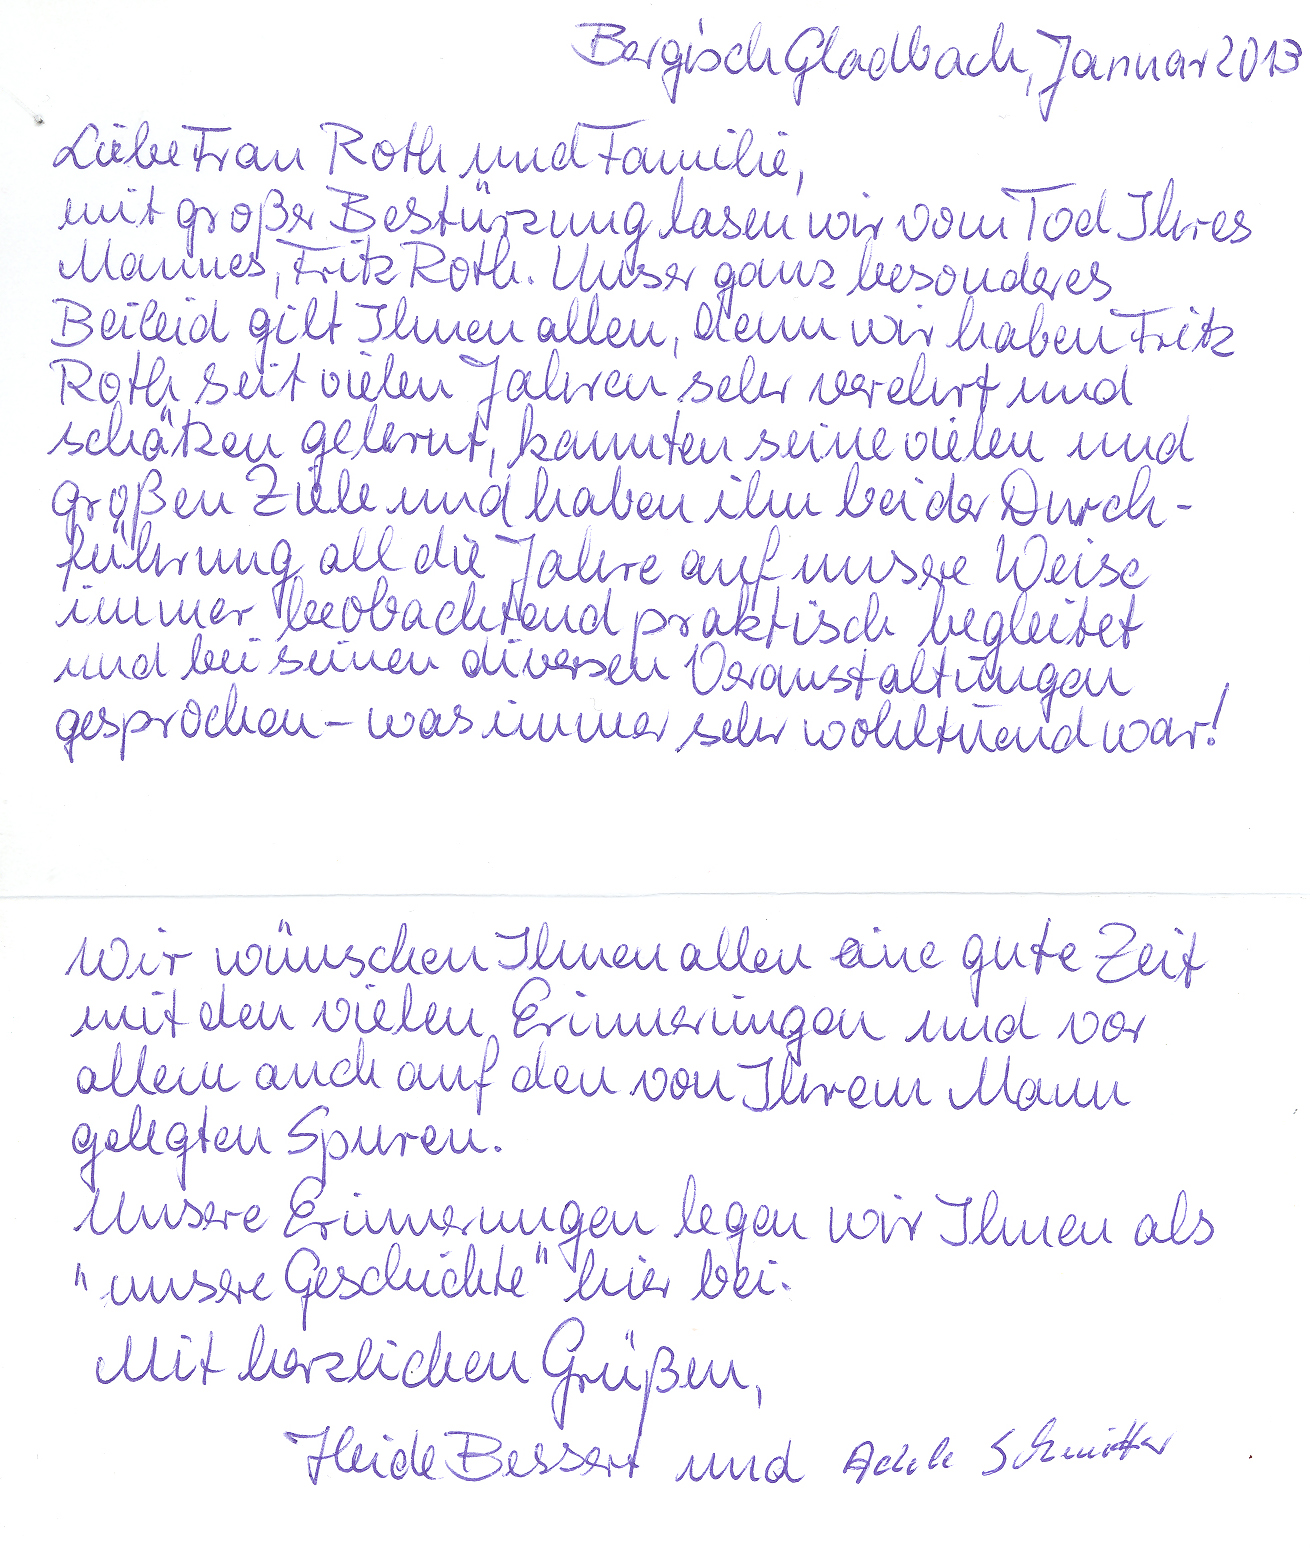 Bergisch Gladbach, Januar 2013
Liebe Frau Roth und Familie,
mit großer Bestürzung lasen wir vom Tod Ihres
Mannes, Fritz Roth. Unser ganz besonderes
Beileid gilt Ihnen allen, denn wir haben Fritz
Roth seit vielen Jahren sehr verehrt und
schätzen gelernt, kannten seine vielen und
großen Ziele und haben ihn bei der Durch-
führung all die Jahre auf unsere Weise
immer beobachtend praktisch begleitet
und bei seinen diversen Veranstaltungen
gesprochen – was immer sehr wohltuend war!
Wir wünschen Ihnen allen eine gute Zeit
mit den vielen Erinnerungen und vor
allem auch auf den von Ihrem Mann
gelegten Spuren.
Unsere Erinnerungen legen wir Ihnen als
"unsere Geschichte" hier bei.
Mit herzlichen Grüßen,
Heide Bessert und Adele Schmitter